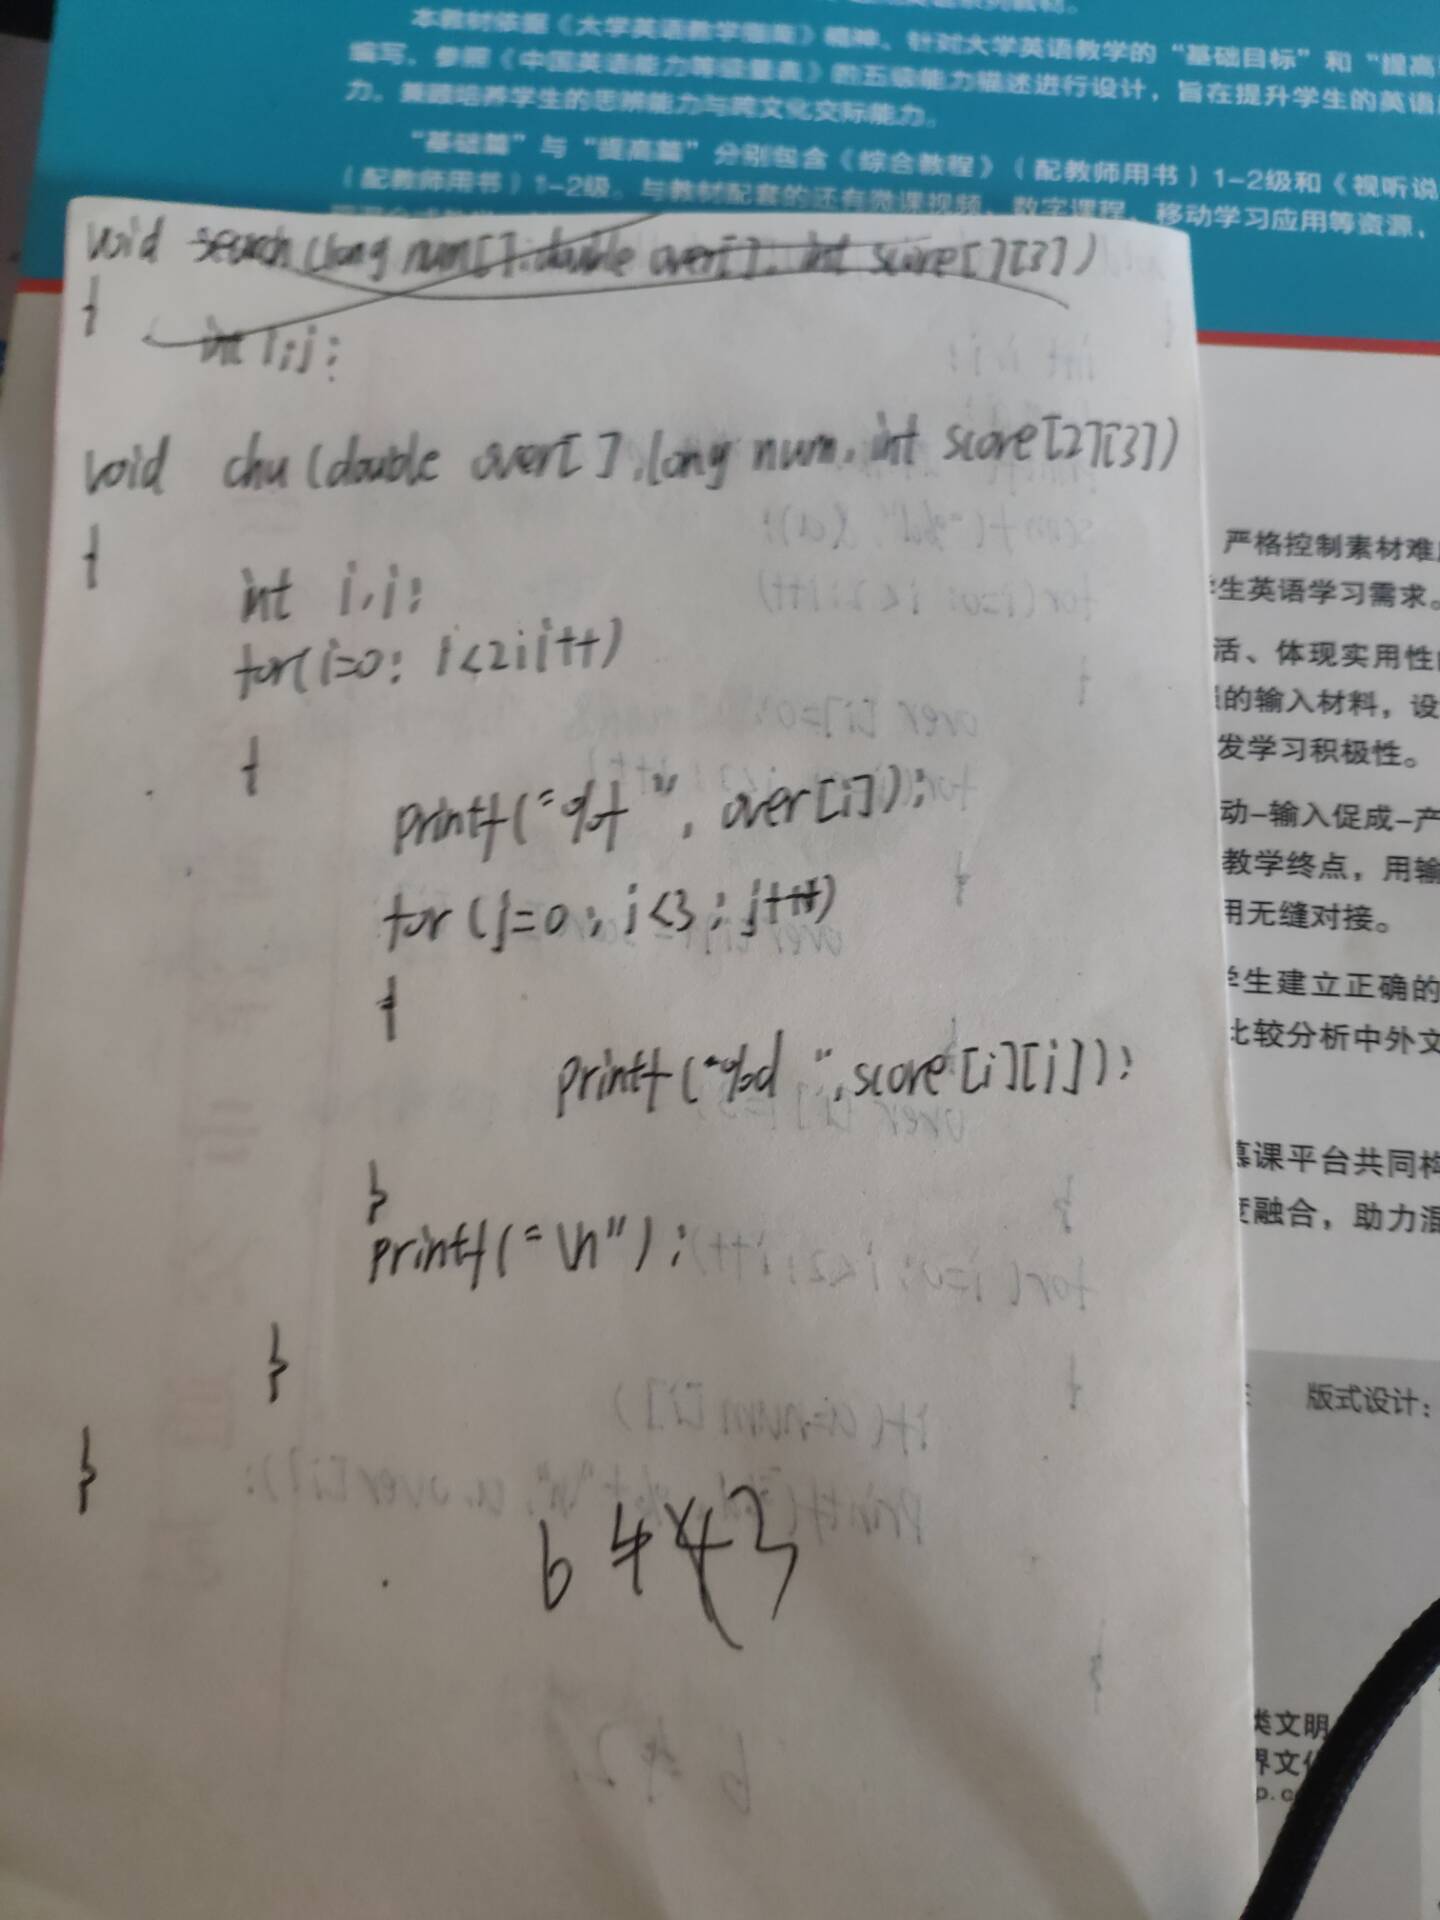 本教材依据《大学英语教学指南》精神、针对大学英语教学的“基础目标”和“提高
编写。参照《中国英语能力等级量表》的五级能力描述进行设计，旨在提升学生的英语
力。兼顾培养学生的思辨能力与跨文化交际能力。
“基础篇”与“提高篇”分别包含《综合教程》（配教师用书）1-2级和《视听说
（配教师用书）1-2级。与教材配套的还有微课视频、数字课程、移动学习应用等资源，
void search(long num[],double aver[], int score[][3])
{
int i,j;
void chu(double aver[],long num, int score[2][3])
{
int i,j;
for(i=0; i<2;i++)
{
printf("%f ", aver[i]);
for(j=0;j<3;j++)
{
printf("%d ",score[i][j]);
}
printf("\n");
}
}
严格控制素材难
学生英语学习需求。
活、体现实用性
的输入材料，设
发学习积极性。
动-输入促成-产
教学终点，用输
用无缝对接。
学生建立正确的
比较分析中外文
慕课平台共同构
度融合，助力混
版式设计：
类文明
界文化